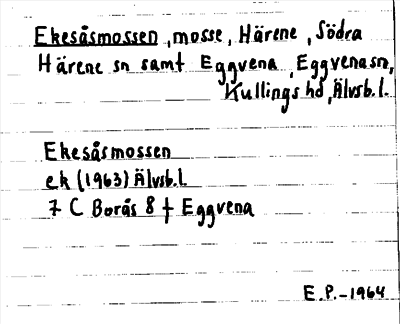 Ekesåsmossen, mosse, Härene, Södra
Härene sn samt Eggvena, Eggvena sn,
Kullings hd, Älvsb.l.
Ekesåsmossen
ek (1963) Älvsb.l.
7 C Borås 8 f Eggvena
E.P.-1964